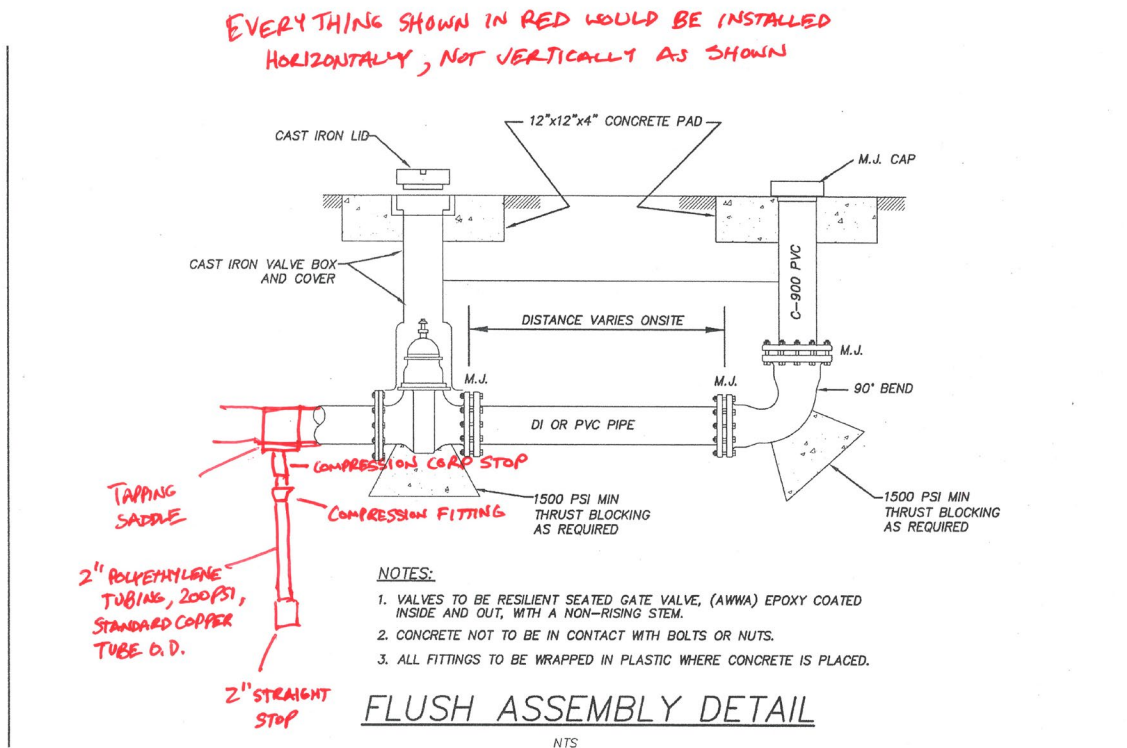 EVERYTHING SHOWN IN RED WOULD BE INSTALLED
HORIZONTALLY, NOT VERTICALLY AS SHOWN
12"x12"x4" CONCRETE PAD
CAST IRON LID
M.J. CAP
CAST IRON VALVE BOX
AND COVER
C-900 PVC
DISTANCE VARIES ONSITE
M.J.
M.J.
M.J.
90° BEND
DI OR PVC PIPE
COMPRESSION CORP STOP
TAPPING
SADDLE
COMPRESSION FITTING
1500 PSI MIN
THRUST BLOCKING
AS REQUIRED
1500 PSI MIN
THRUST BLOCKING
AS REQUIRED
2" POLYETHYLENE
TUBING, 200PSI,
STANDARD COPPER
TUBE O.D.
2" STRAIGHT
STOP
NOTES:
1. VALVES TO BE RESILIENT SEATED GATE VALVE, (AWWA) EPOXY COATED
INSIDE AND OUT, WITH A NON-RISING STEM.
2. CONCRETE NOT TO BE IN CONTACT WITH BOLTS OR NUTS.
3. ALL FITTINGS TO BE WRAPPED IN PLASTIC WHERE CONCRETE IS PLACED.
FLUSH ASSEMBLY DETAIL
NTS